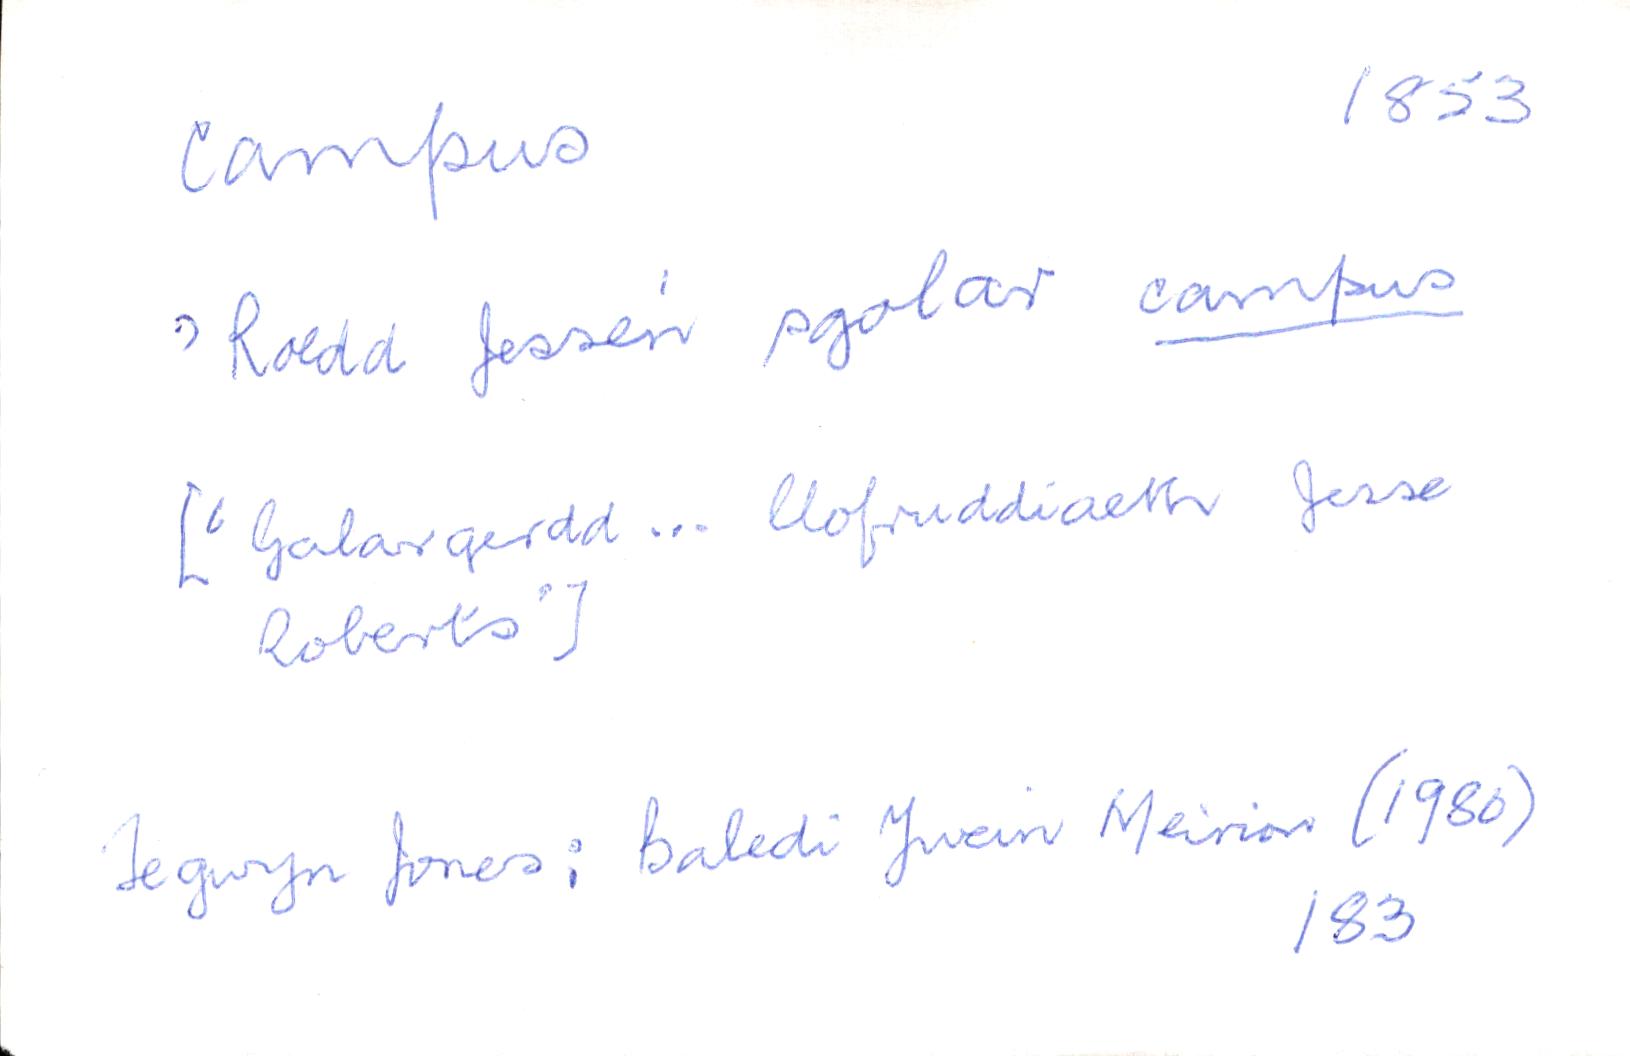 campus
1853
'Roedd Jesse'n sgolar campus
['Galargerdd... llofruddiaeth Jesse
Roberts']
Tegwyn Jones: Baledi Ywain Meirion (1980)
183